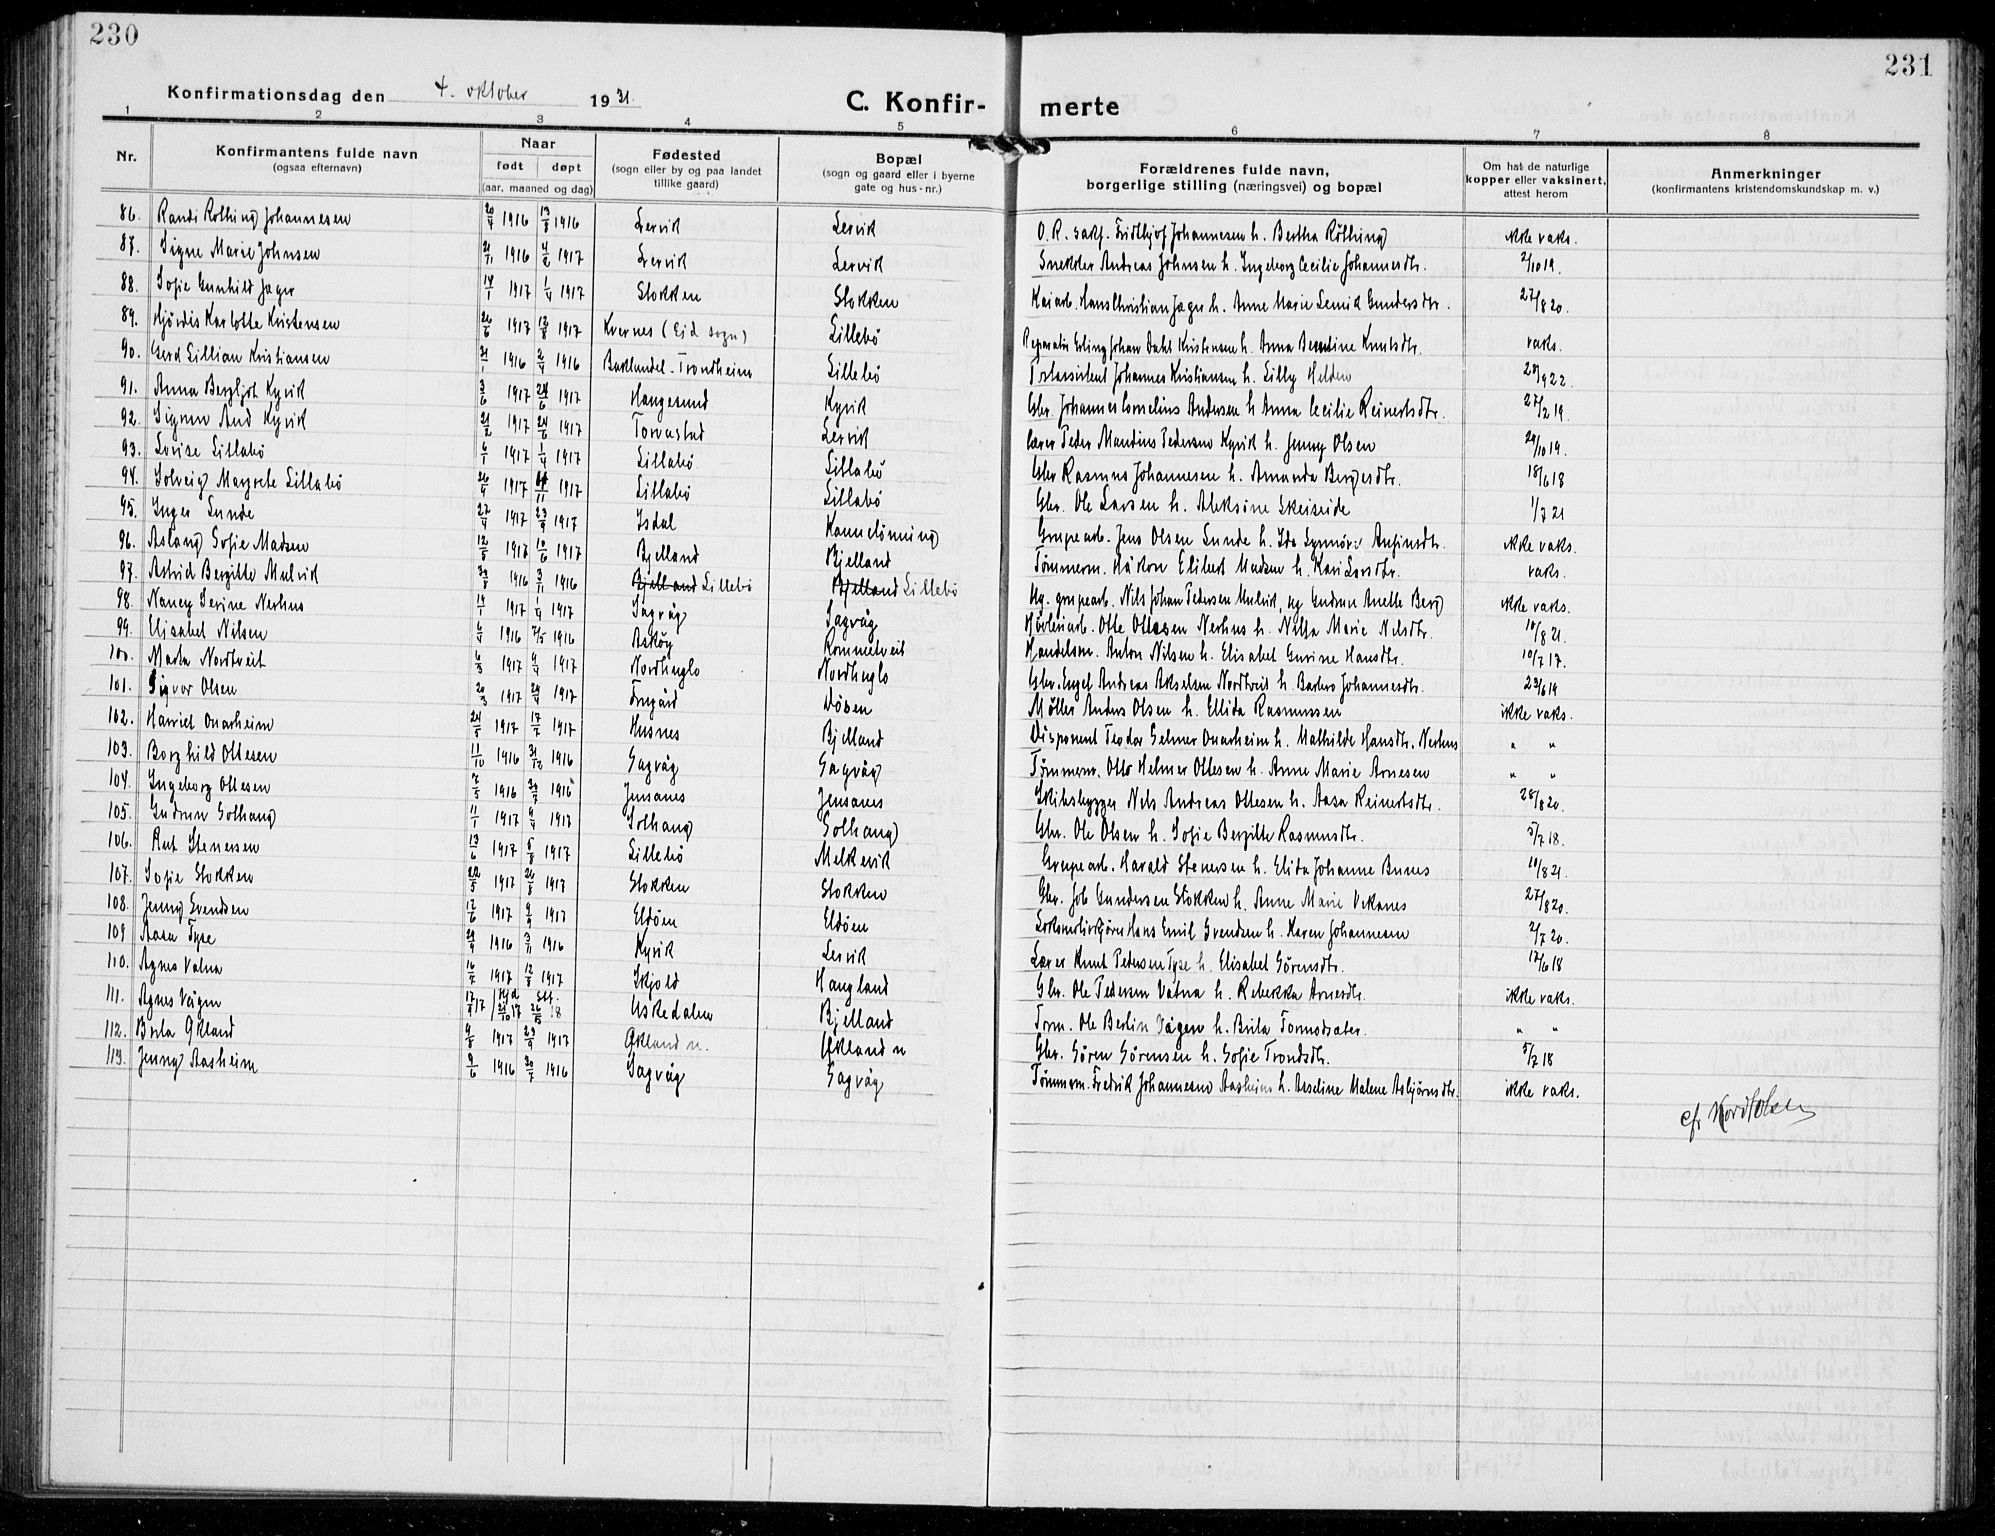 230
231
Konfirmationsdag den 4. oktober 1931.
C. Konfir- merte
1 2 3 4 5 6 7 8
Nr.
Konfirmantens fulde navn (ogsaa efternavn)
Naar født døpt (aar, maaned og dag)
Fødested (sogn eller by og paa landet tillike gaard)
Bopæl (sogn og gaard eller i byerne gate og hus-nr.)
Forældrenes fulde navn, borgerlige stilling (næringsvei) og bopæl
Om hat de naturlige kopper eller vaksinert, attest herom
Anmerkninger (konfirmantens kristendomskundskap m. v.)
86. Randi Röthing Johannesen 20/4 1916 13/8 1916 Lervik Lervik O.R. sakf. Fridthjof Johannesen h. Bertha Röthing ikke vaks.
87. Signe Marie Johnsen 21/11 1916 4/2 1917 Lervik Lervik Snekker Andreas Johnsen h. Ingeborg Cecilie Johannesdtr. 2/10 19.
88. Sofie Gunhild Jæger 14/1 1917 1/4 1917 Stokken Stokken Kaiarb. Hans Christian Jæger h. Anne Marie Gundersdtr. 27/8 20.
89. Hjördis Karlotte Kristensen 26/6 1917 12/8 1917 Kvernes (Eid sogn) Lillebö Reparatör Erling Johan Dahl Kristensen h. Anna Knutsdtr. vaks.
90. Gerd Lillian Kristiansen 31/1 1916 2/4 1916 Baklandet - Trondheim Lillebö Johannes Kristiansen h. Lilly Helden 28/9 22.
91. Anna Bergljot Kyvik 3/6 1917 24/6 1917 Haugesund Kyvik Gbr. Johannes Cornelius Andersen h. Anna Cecilie Reinertsdtr. 27/2 19.
92. Signun Aud Kyvik 21/2 1917 24/6 1917 Torvastad Lervik Lærer Peder Mandius Pedersen Kyvik h. Jenny Olsen 29/10 19.
93. Lovise Litlabö 6/1 1917 1/4 1917 Litlabö Litlabö Gbr Rasmus Johannesen h. Amanda Bergesdtr. 18/6 18
94. Solveig Margrete Litlabö 26/9 1917 11/11 1917 Litlabö Litlabö Gbr. Ole Larsen h. Aleksine Skeiseide 1/7 21
95. Inger Lunde 27/4 1917 23/9 1917 Isdal Kannelönning Grupearb. Jens Olsen Lunde h. Ida Synnöve Anfinsdtr. ikke vaks.
96. Aslaug Sofie Madsen 12/5 1917 10/6 1917 Bjelland Bjelland Tömmerm. Håkon Elibert Madsen h. Kari Larsdtr. vaks.
97. Astrid Bergitte Mulvik 30/8 1916 3/11 1916 Bjelland Lillebö Bjelland Lillebö Ug. grupearb. Nils Johan Pedersen Mulvik, ug Gudrun Anette Berg ikke vaks.
98. Nancy Serine Nerhus 14/1 1917 1/4 1917 Sagvåg Sagvåg Hövleriarb. Otte Ottesen Nerhus h. Nilja Marie Nilsdtr. 10/8 21.
99. Elisabet Nilsen 6/4 1916 7/5 1916 Asköy Rommetveit Handelsm. Anton Nilsen h. Elisabet Gurine Hansdtr. 10/7 17.
100. Marta Nordtveit 4/3 1917 9/4 1917 Nordhuglo Nordhuglo Gbr. Engel Andreas Akselsen Nordtveit h. Barbro Johannesdtr. 23/6 19
101. Sigvor Olsen 20/3 1917 29/4 1917 Tregård Vösen Möller Anders Olsen h. Ellida Rasmussen ikke vaks.
102. Harriet Onarheim 24/5 1917 17/7 1917 Husnes Bjelland Disponent Teodor Selmer Onarheim h. Mathilde Hansdtr. Nerhus " "
103. Borghild Ottesen 11/10 1916 31/12 1916 Sagvåg Sagvåg Tömmerm. Otto Helmer Ottesen h. Anne Marie Arnesen " "
104. Ingeborg Ottesen 7/5 1916 30/7 1916 Jensanes Jensanes Skibsbygger Nels Andreas Ottesen h. Aasa Reinertsdtr. 28/8 20.
105. Gudrun Solhaug 11/1 1917 9/4 1917 Solhaug Solhaug Gbr. Ole Olsen h. Sofie Bergitte Rasmusdtr. 5/7 18.
106. Rut Stenersen 13/6 1917 5/8 1917 Lillebö Melkevik Grupearb. Harald Stenersen h. Elida Johanne Bunes 10/8 21.
107. Sofie Stokken 22/5 1917 26/8 1917 Stokken Stokken Gbr. Job Gundersen Stokken h. Anne Marie Vikanes 27/8 20.
108. Jenny Svendsen 12/6 1917 9/9 1917 Eldöen Eldöen Lokomotivkjörer Hans Emil Svendsen h. Karen Johannesen 2/7 20.
109 Aasa Tyse 29/9 1916 3/11 1916 Kyvik Lervik Lærer Knut Pedersen Tyse h. Elisabet Sörensdtr. 17/6 18
110. Agnes Vatna 16/7 1917 12/8 1917 Skjold Haugland Gbr. Ole Pedersen Vatna h. Rebekka Arnesdtr. ikke vaks.
111. Agnes Vågen 17/9 17 Hjd 21/10 17 stf. 26/5 18 Uskedalen Bjelland Tmm. Ole Berlin Vågen h. Brita Tormodsæter. " "
112. Brita Økland 9/8 1917 23/9 1917 Økland n. Økland n Gbr. Sören Sörensen h. Sofie Trondsdtr. 5/2 18
113. Jenny Aasheim 9/6 1916 30/7 1916 Sagvåg Sagvåg Tömmerm. Fredrik Johannesen Aasheim h. Asseline Malene Asbjörnsdtr. ikke vaks.